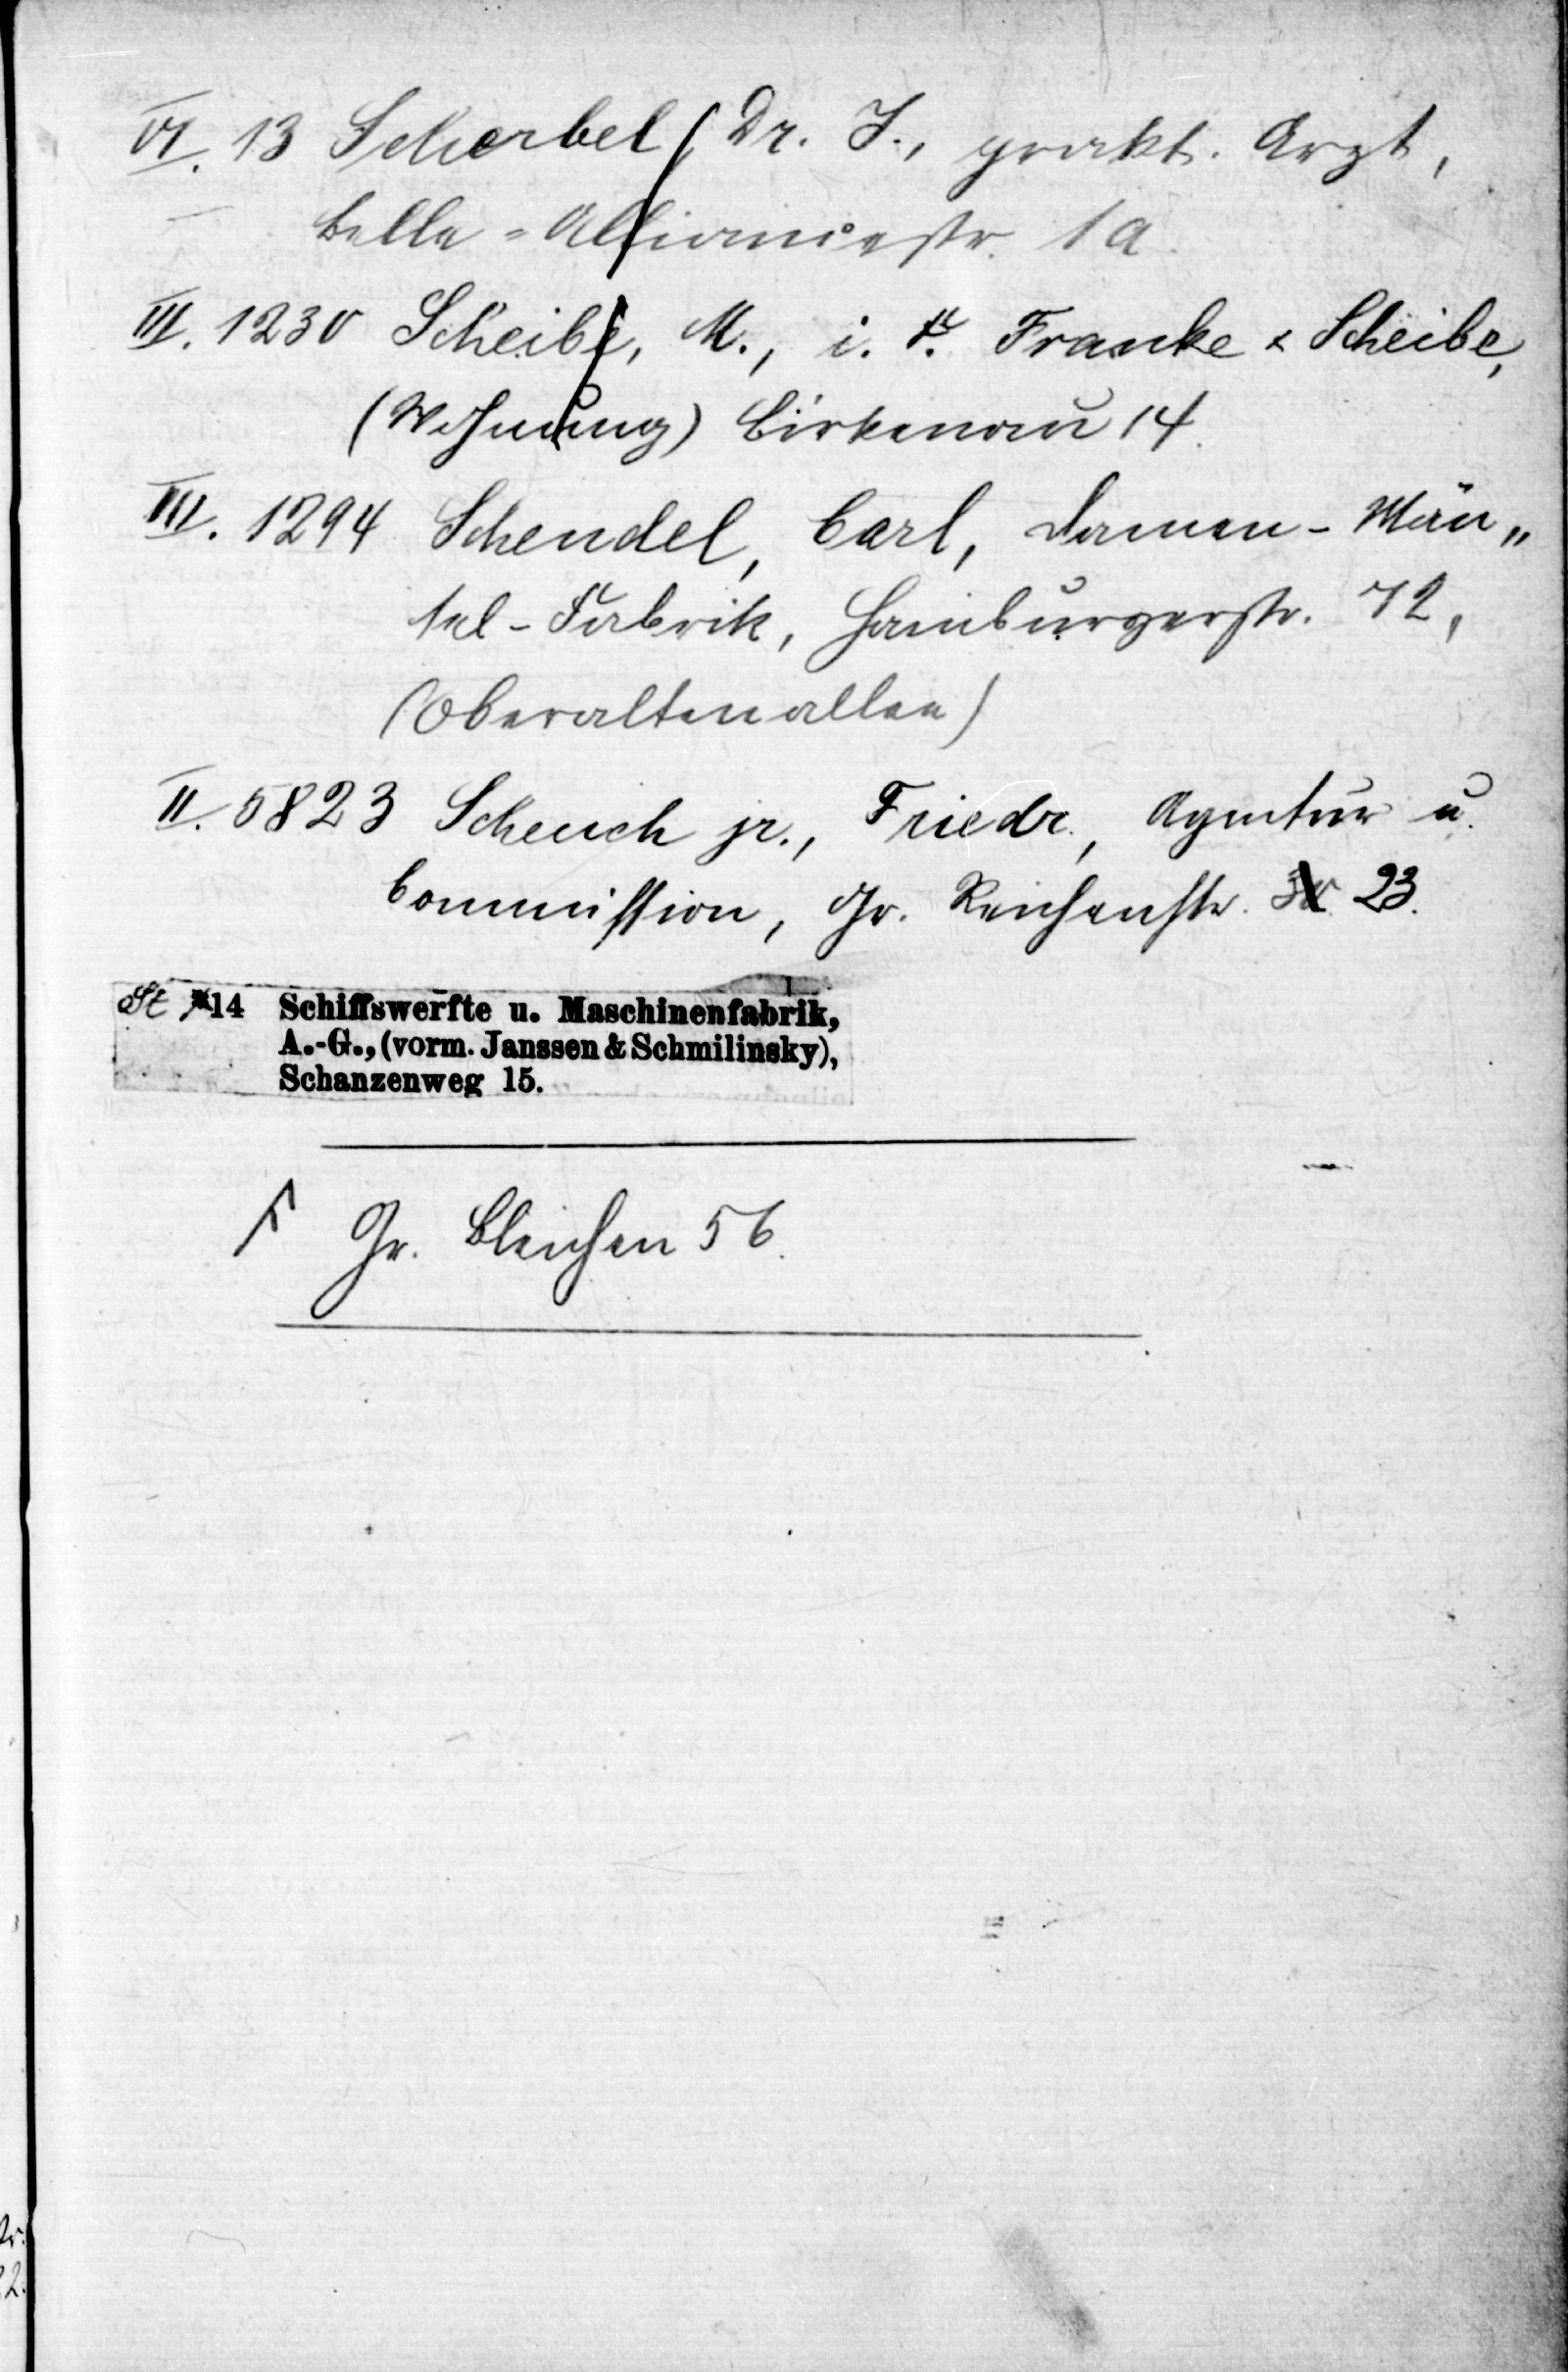 VI. 13 Scherbel, Dr. J., prakt. Arzt,
Belle-Alliancestr. 1a.
III. 1230 Scheibe, M., i. F. Francke & Scheibe,
(Wohnung) Birkenau 14.
III. 1294 Schendel, Carl, Damen-Män„
tel-Fabrik, Hamburgerstr. 72,
(Oberaltenallee)
II. 5823 Scheuch jr., Friedr., Agentur u.
Commission, Gr. Reichenstr. 23.
St 14 Schiffswerfte u. Maschinenfabrik,
A.-G., (vorm. Janssen & Schmilinsky),
Schanzenweg 15.
Gr. Bleichen 56.